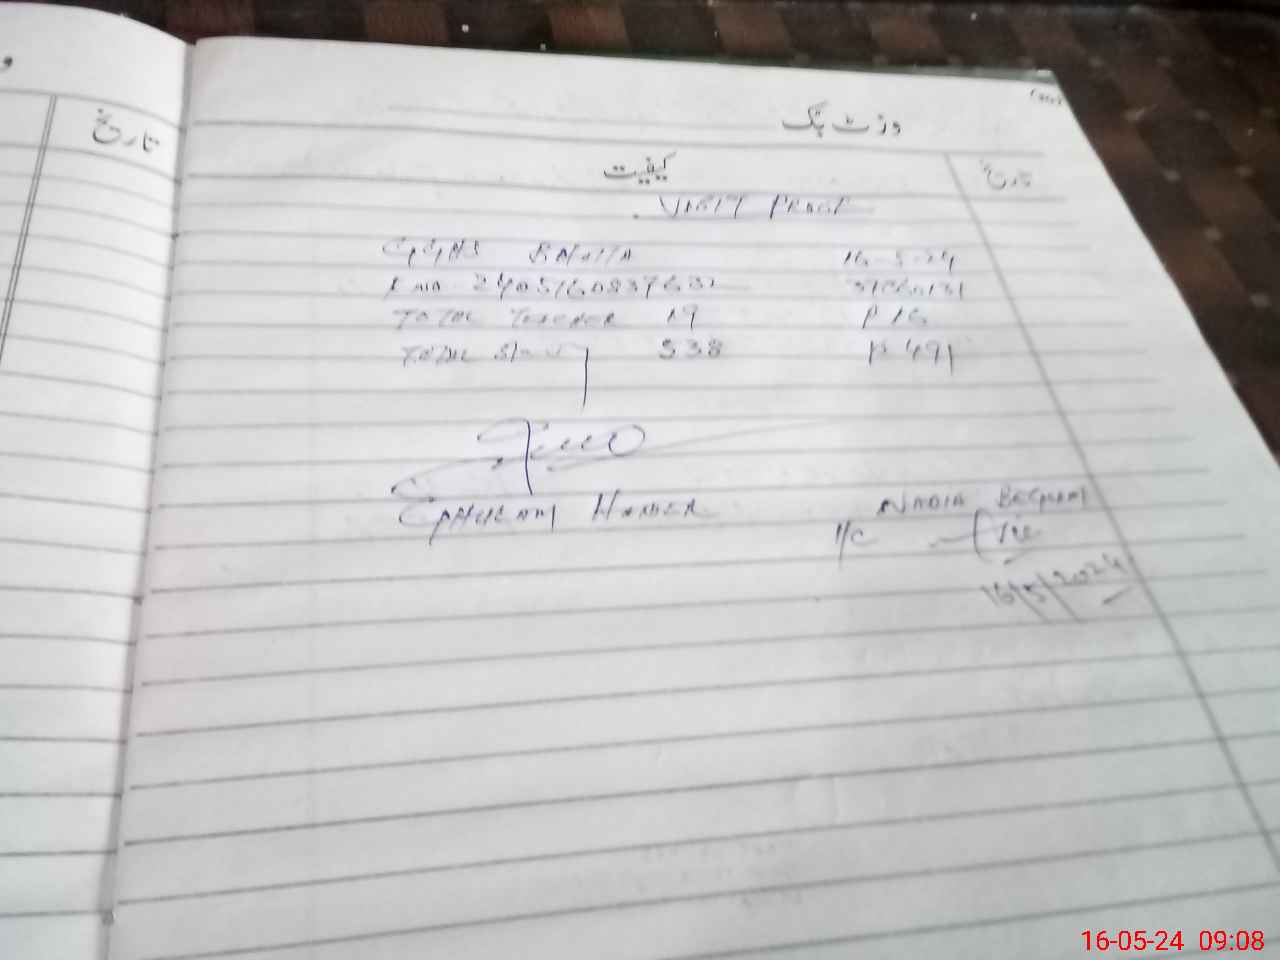 تاریخ
وزٹ بک
تاریخ
کیفیت
VISIT PROOF
GGHS 16-5-24
240516083763
TOTAL TEACHER 19 P 16
TOTAL 538 P 491
GHULAM HAIDER
NADIA BEGHAM
I/C
16/5/2024
16-05-24 09:08